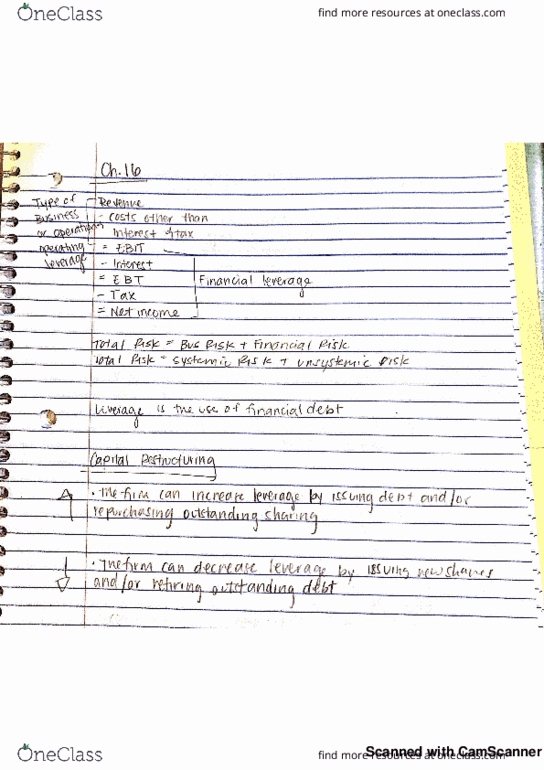 OneClass
find more resources at oneclass.com
Ch.16
Type of
Business
or operating
operating
leverage
Revenue
- costs other than
Interest & tax
= EBIT
- Interest
= EBT
- Tax
= Net income
Financial leverage
Total Risk = Bus Risk + Financial Risk
Total Risk = Systemic Risk + unsystemic Risk
Leverage is the use of financial debt
Capital Restructuring
• The firm can increase leverage by issuing debt and/or
repurchasing outstanding sharing
• The firm can decrease leverage by issuing new shares
and/or retiring outstanding debt
OneClass
find more resources at oneclass.com
Scanned with CamScanner